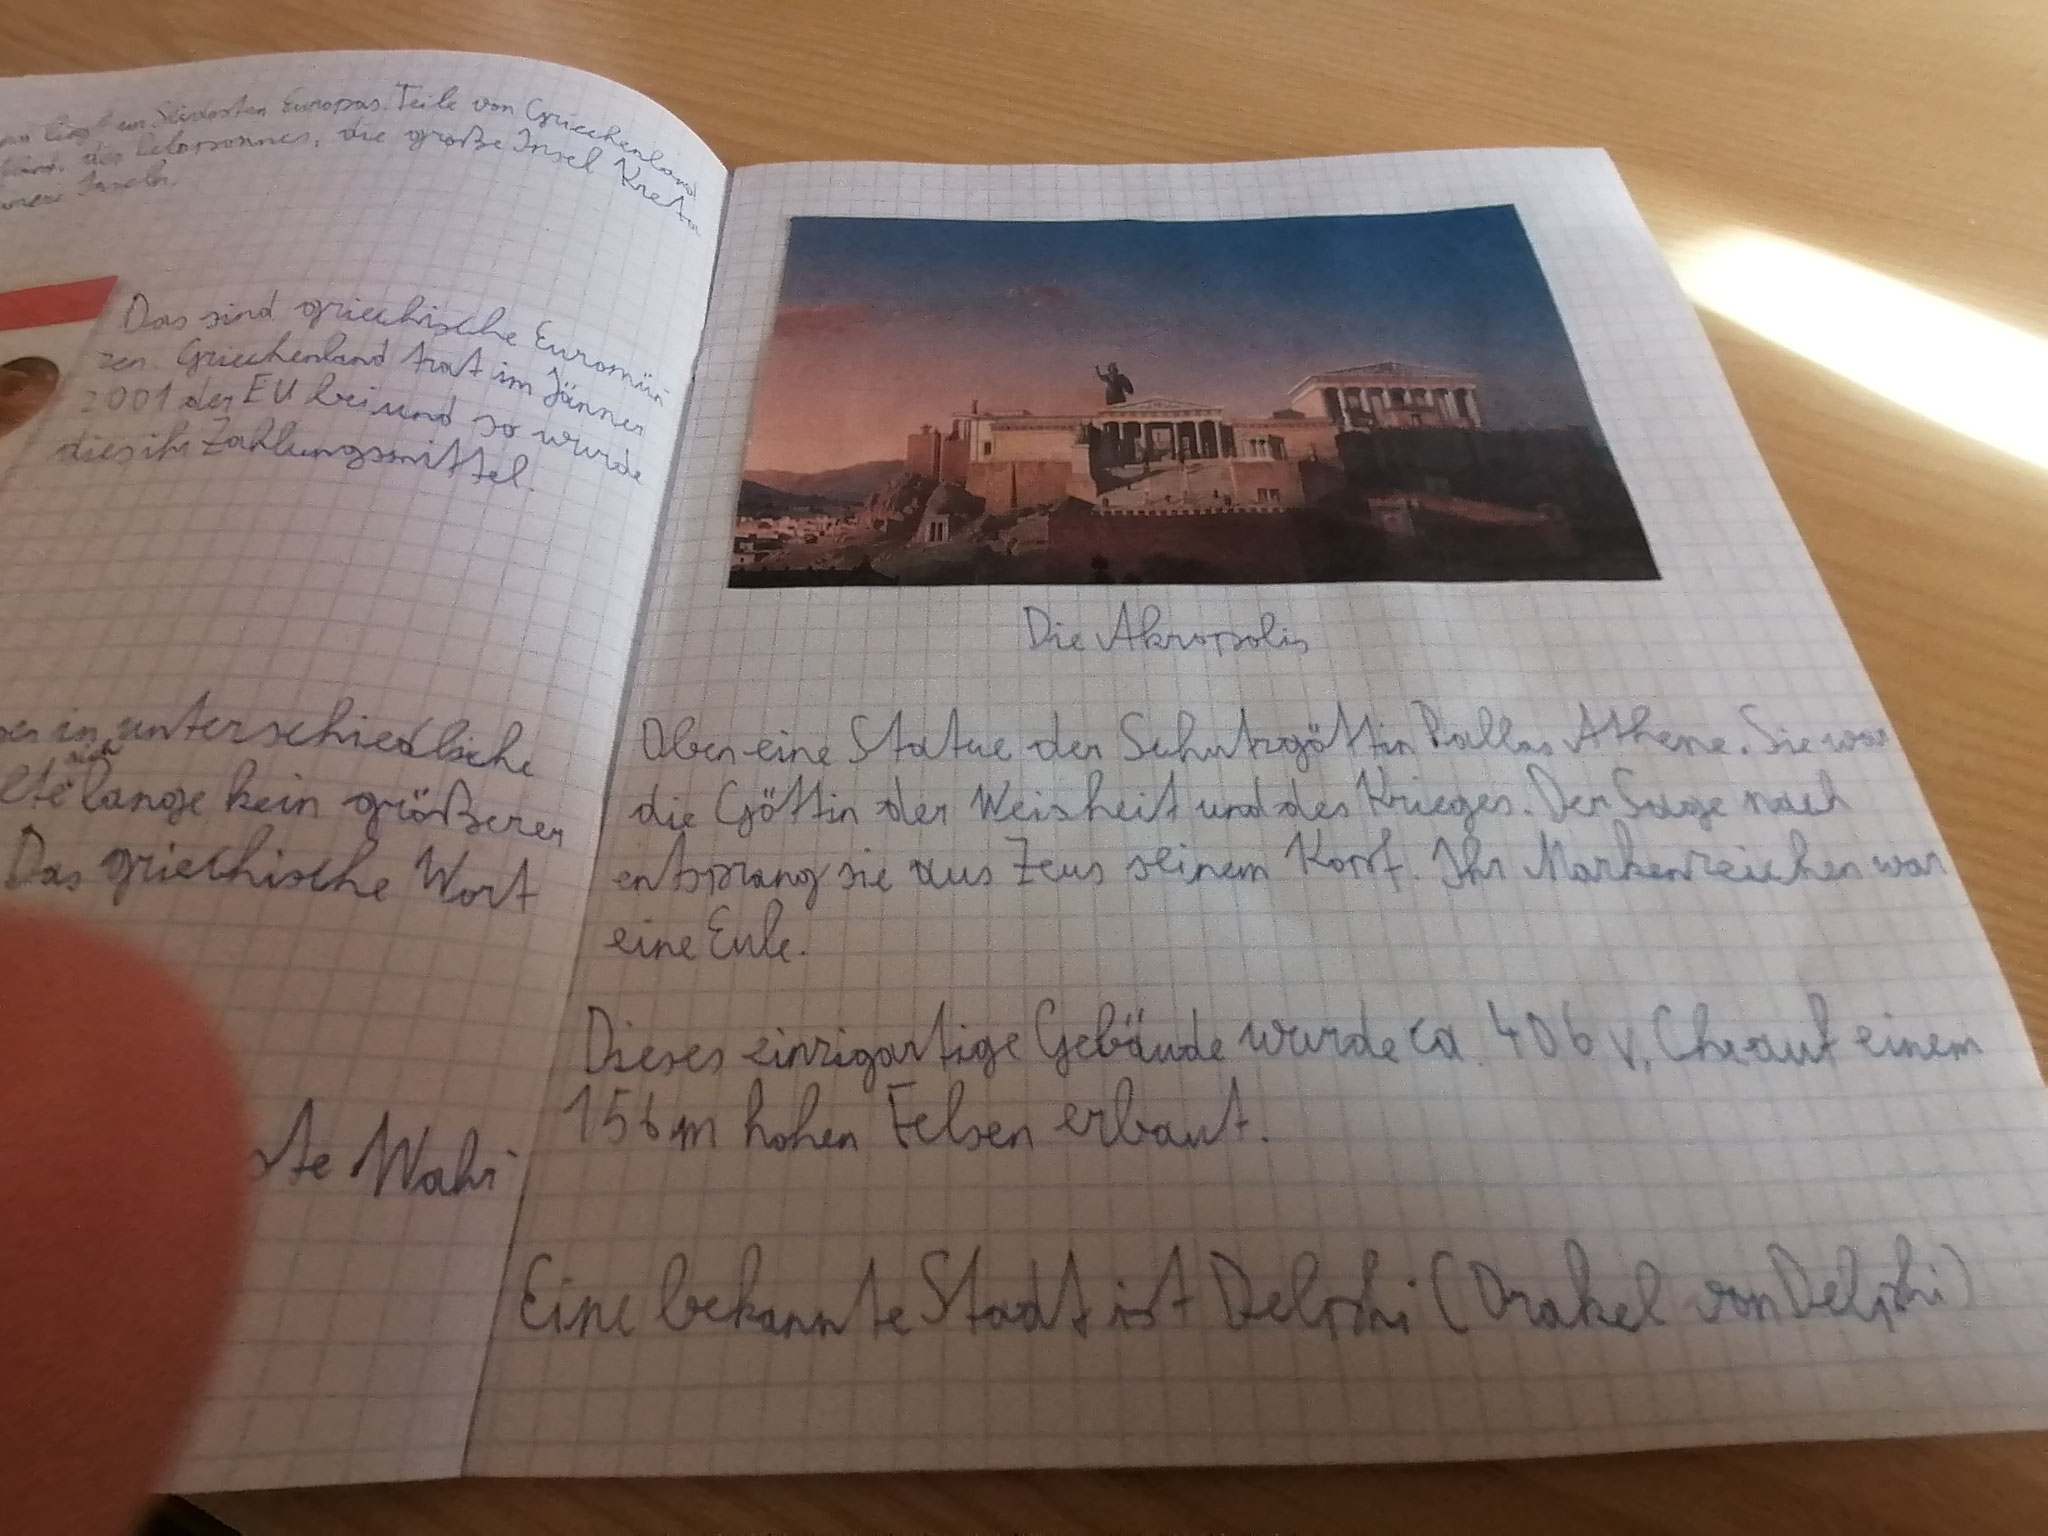 liegt im Südosten Europas. Teile von Griechenland
des Peloponnes, die große Insel Kreta
Inseln.
Das sind griechische Euromün
zen. Griechenland trat im Jänner
2001 der EU bei und so wurde
dies ihr Zahlungsmittel.
in unterschiedliche
sich
lange kein größerer
Das griechische Wort
Die Akropolis
Oben eine Statue der Schutzgöttin Pallas Athene. Sie war
die Göttin der Weisheit und des Krieges. Der Sage nach
entsprang sie aus Zeus seinem Kopf. Ihr Markenzeichen war
eine Eule.
Dieses einzigartige Gebäude wurde ca. 406 v. Chr auf einem
156m hohen Felsen erbaut.
Eine bekannte Stadt ist Delphi (Orakel von Delphi)